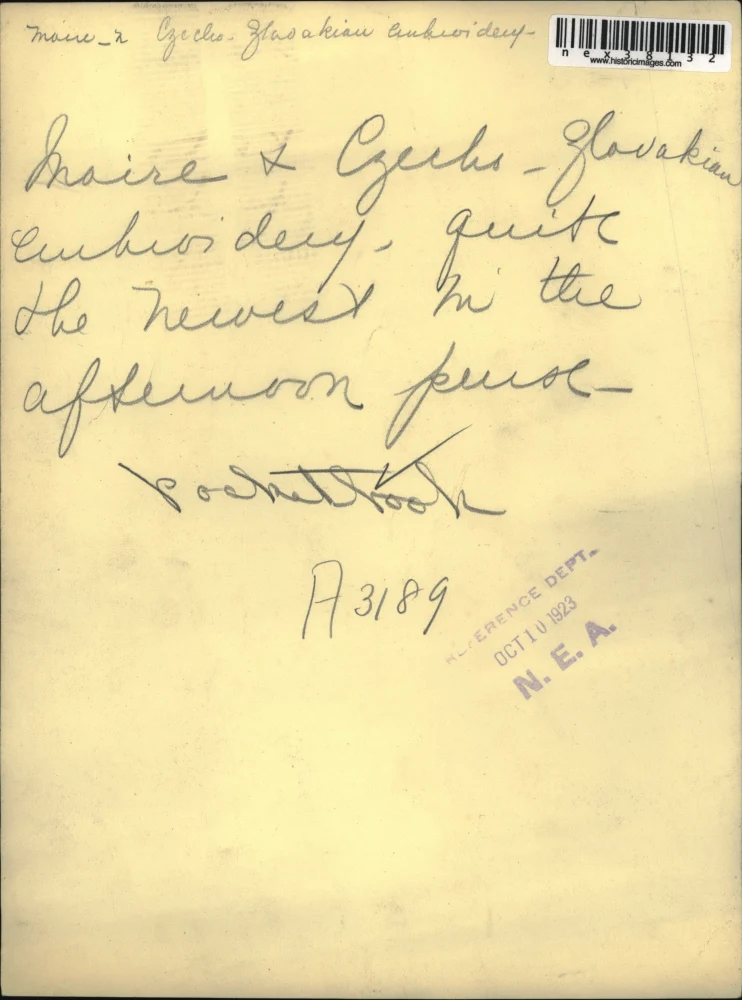 Moire & Czecho-Zlovakian embroidery-
nex38132
www.historicimages.com
Moire & Czecho-Zlovakian
embroidery, quite
the newest in the
afternoon purse-
Pocketbook
A3189
REFERENCE DEPT.
OCT 10 1923
N. E. A.